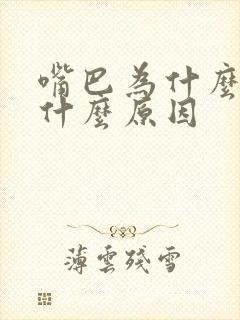 嘴巴為什麼
什麼原因
薄雲殘雪